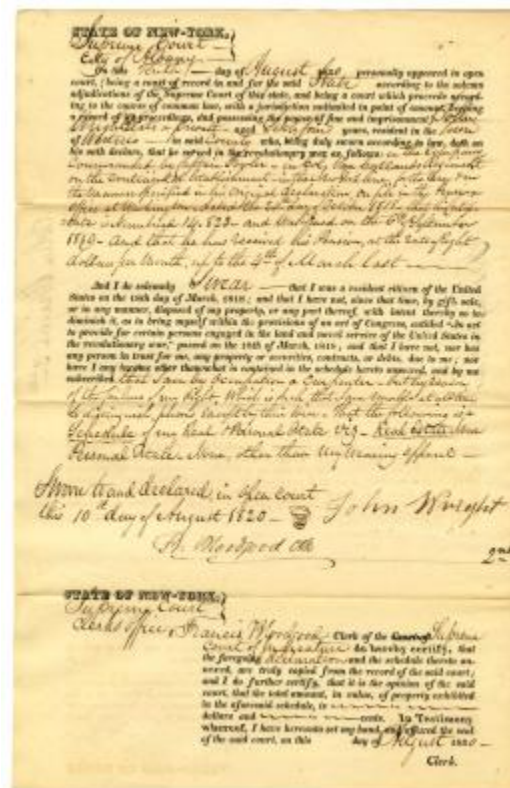 STATE OF NEW-YORK.
Supreme Court
City of Albany
On this tenth day of August 1820 personally appeared in open
court, being a court of record in and for the said State according to the solemn
adjudications of the Supreme Court of this state, and being a court which proceeds accord-
ing to the course of common law, with a jurisdiction unlimited in point of amount, keeping
a record of its proceedings, and possessing the power of fine and imprisonment John
Wright aged years, resident in the town
of in said County who, being duly sworn according to law, doth on
his oath declare, that he served in the revolutionary war as follows: in the Company
Commanded by Captain in Col. Van Cortlandts Regiment
on the Continental establishment in the New York line
the manner specified in his original declaration on file in the Pension
office at Washington dated the day of October 1818 - that his Certifi-
cate is Numbered 14.823 - and was issued on the 6th September
1819 - And that he has received his Pension, at the rate of eight
dollars per Month, up to the 4th of March last
And I do solemnly Swear that I was a resident citizen of the United
States on the 18th day of March, 1818; and that I have not, since that time, by gift, sale,
or in any manner, disposed of my property, or any part thereof, with intent thereby so to
diminish it, as to bring myself within the provisions of an act of Congress, entitled "An act
to provide for certain persons engaged in the land and naval service of the United States in
the revolutionary war," passed on the 18th of March, 1818; and that I have not, nor has
any person in trust for me, any property or securities, contracts, or debts, due to me; nor
have I any income other than what is contained in the schedule hereto annexed, and by me
subscribed that I am by Occupation a Carpenter - but by reason
of the failure of my Sight, which is such that I am
to distinguish persons except by their voice - that the following is a
Schedule of my Real & Personal Estate viz - Real estate None
Personal Estate - None, other than my wearing apparel -
Sworn to and declared, in open court
this 10th day of August 1820 -
John Wright
F. Woodgood Clk
2nd
STATE OF NEW-YORK.
Supreme Court
Clerks office, Francis Woodgood Clerk of the Court of Supreme
Court of Judicature do hereby certify, that
the foregoing declaration and the schedule thereto an-
nexed, are truly copied from the record of the said court;
and I do further certify, that it is the opinion of the said
court, that the total amount, in value, of property exhibited
in the aforesaid schedule, is
dollars and cents. In Testimony
whereof, I have hereunto set my hand, and affixed the seal
of the said court, on this day of August 1820 -
Clerk.